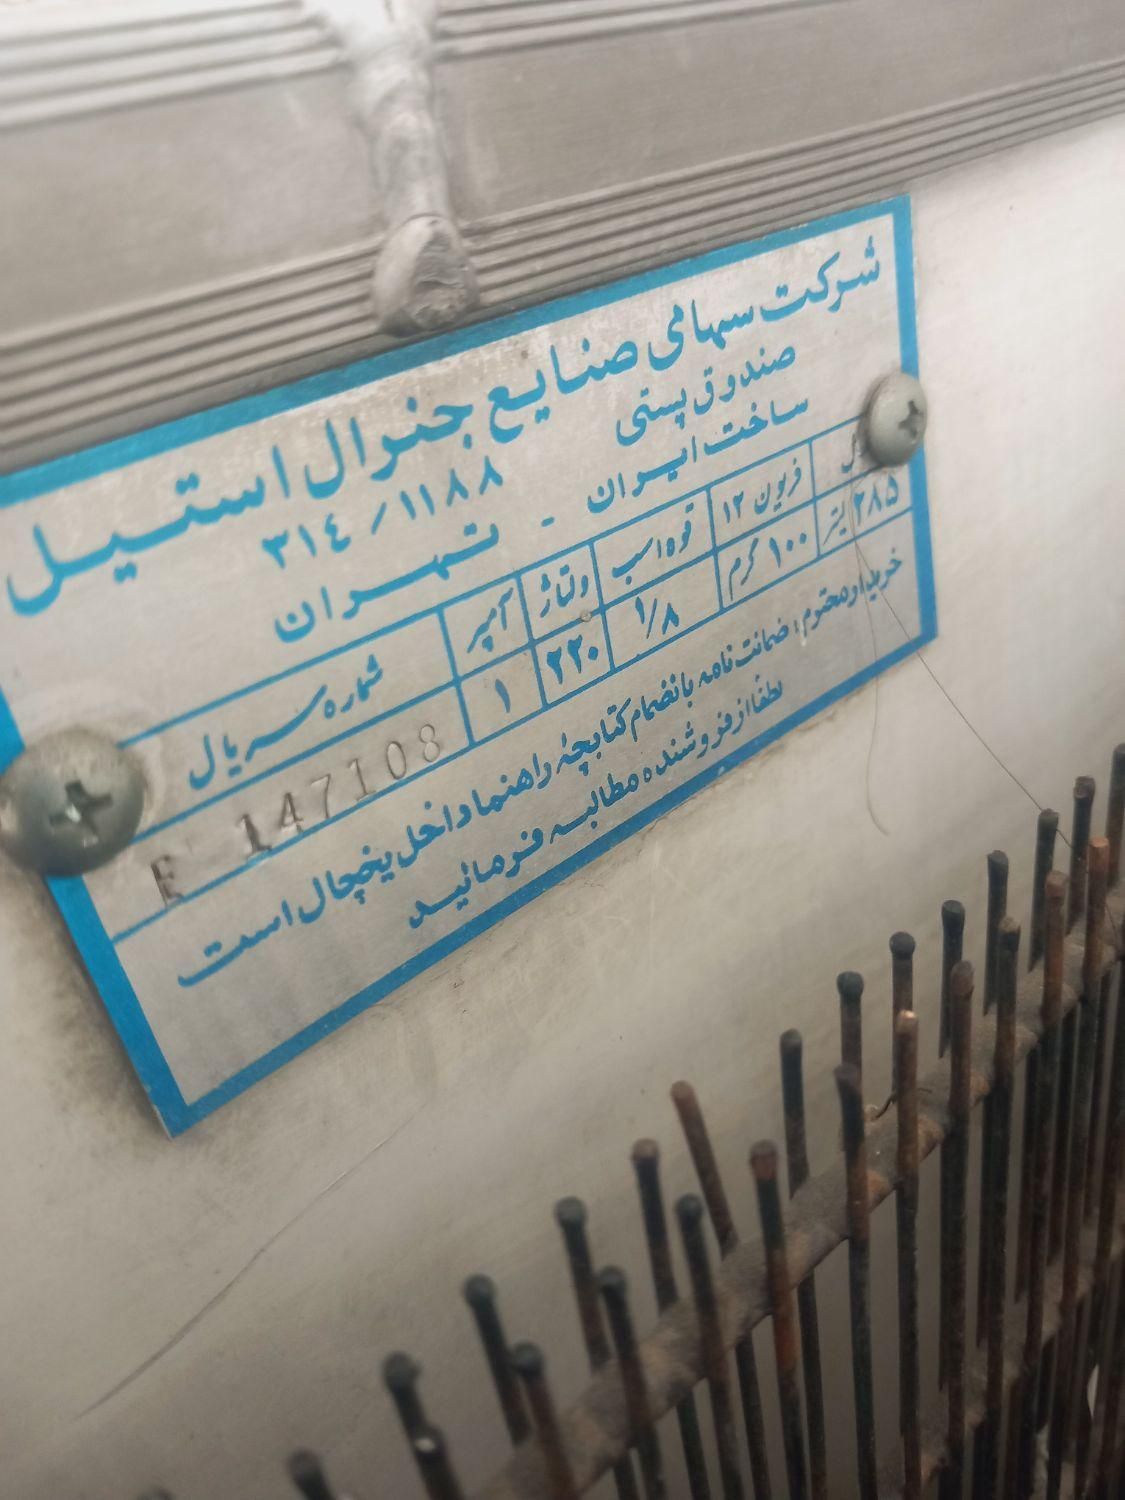 شرکت سهامی صنایع جنرال استیل
صندوق پستی ۳۱٤/۱۱۸۸
ساخت ایران - تهران
فریون ۱۲ قوه اسب ولتاژ آمپر شماره سریال
۲۸۵ لیتر ۱۰۰ گرم ۱/۸ ۲۲۰ ۱ E 147108
خریدار محترم، ضمانت نامه بانضمام کتابچه راهنما داخل یخچال است
لطفاً از فروشنده مطالبه فرمائید